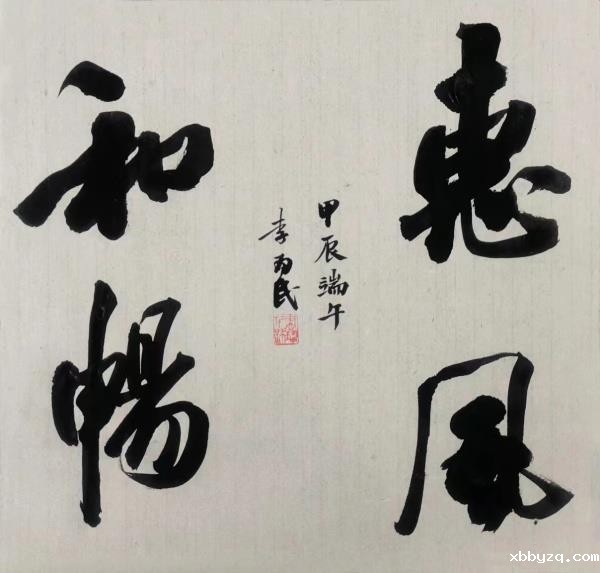 惠風
和暢
甲辰端午
李丙民
xbbyzq.com